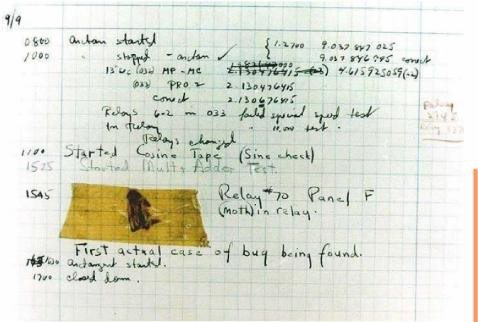 9/9
0800 antan started
1000 " stopped - antan ✓ { 1.2700 9.037 847 025
9.037 846 995 correct
13"uc (032) MP - MC 2.130476415 (-3) 4.615925059(-2)
(033) PRO 2 2.130476415
correct 2.130676415
Relays 6-2 in 033 failed special speed test
In Relay " 10.000 test.
Relays changed
Relay
1100 Started Cosine Tape (Sine check)
1525 Started Mult+Adder Test.
1545 Relay #70 Panel F
(Moth) in relay.
First actual case of bug being found.
antangent started.
1700 closed down.